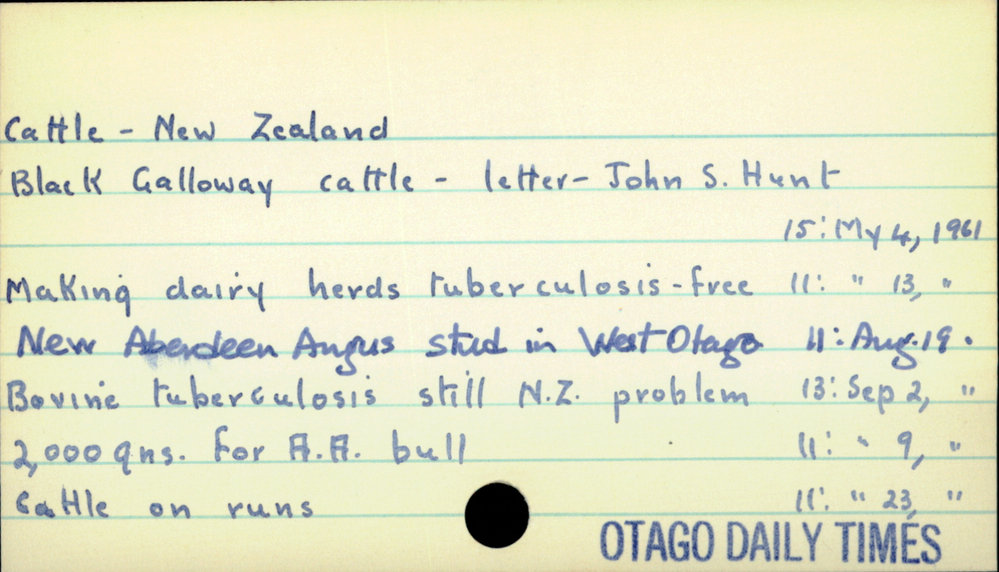 Cattle - New Zealand
Black Galloway cattle - letter - John S. Hunt
15: My 4, 1961
Making dairy herds tuberculosis-free 11: " 13, "
New Aberdeen Angus stud in West Otago 11: Aug. 19.
Bovine tuberculosis still N.Z. problem 13: Sep 2, "
2,000 gns. for A.A. bull 11: " 9, "
Cattle on runs 11: " 23, "
OTAGO DAILY TIMES